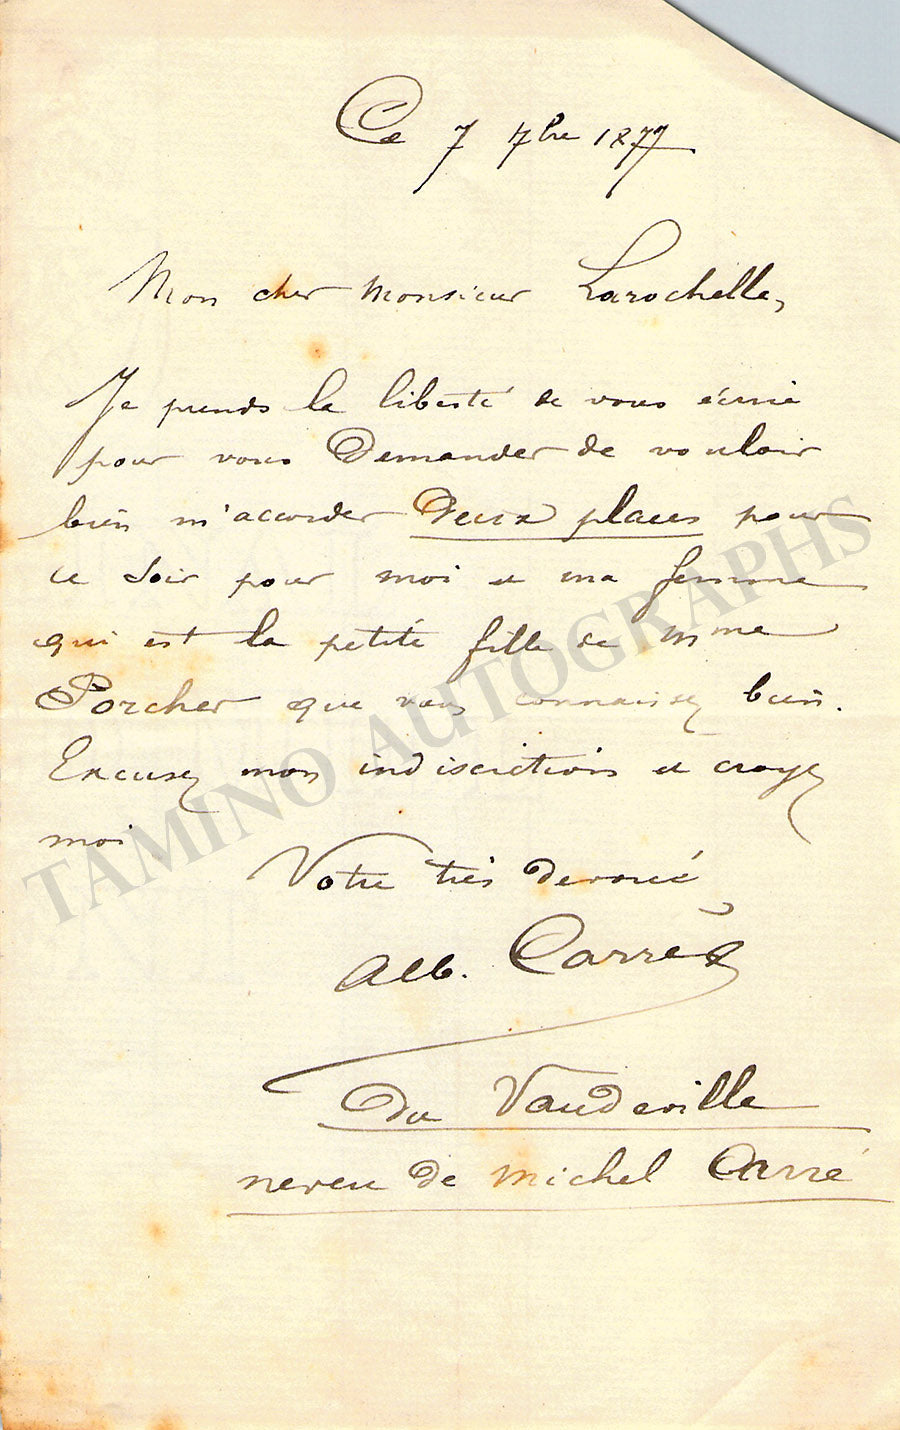 Ce 7 7bre 1877
Mon cher Monsieur Larochelle,
Je prends la liberté de vous écrire
pour vous Demander de vouloir
bien m'accorder Deux places pour
ce soir pour moi et ma femme
qui est la petite fille de Mme
Porcher que vous connaissez bien.
Excusez mon indiscrétion et croyez
moi
Votre très dévoué
Alb. Carré
du Vaudeville
neveu de Michel Carré
TAMINO AUTOGRAPHS